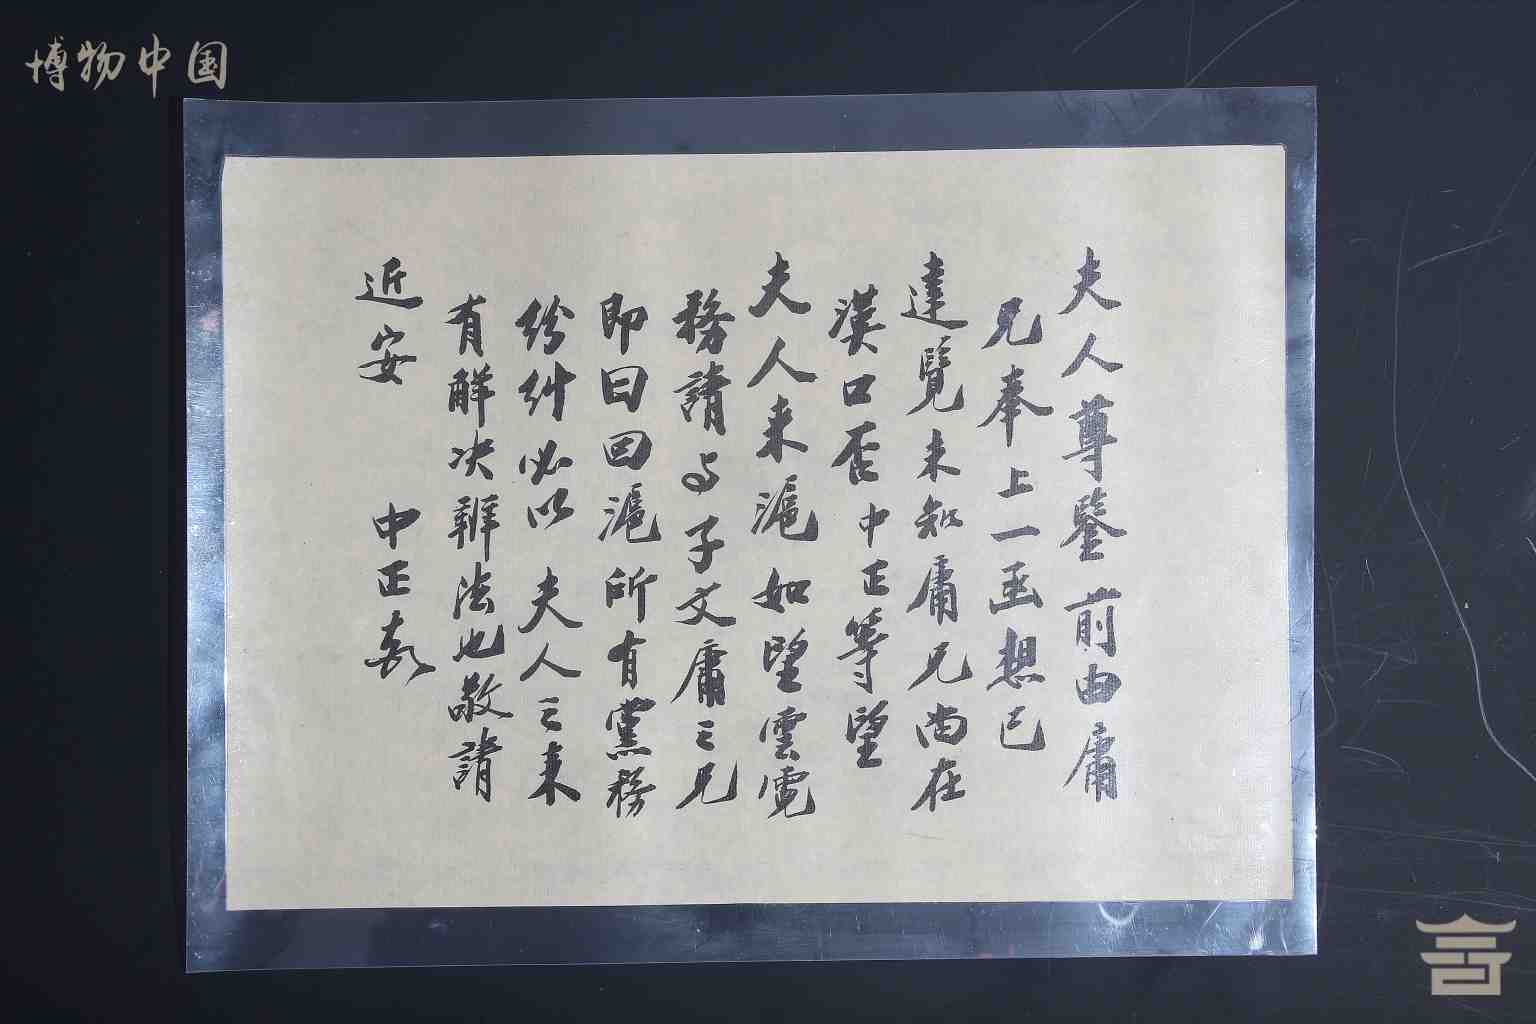 博物中国
夫人尊鑒前由庸
兄奉上一函想已
達覽未知庸兄尚在
漢口否中正等望
夫人来滬如望雲霓
務請與子文庸之兄
即日回滬所有黨務
紛糾必以夫人之来
有解决辦法也敬請
近安
中正敬